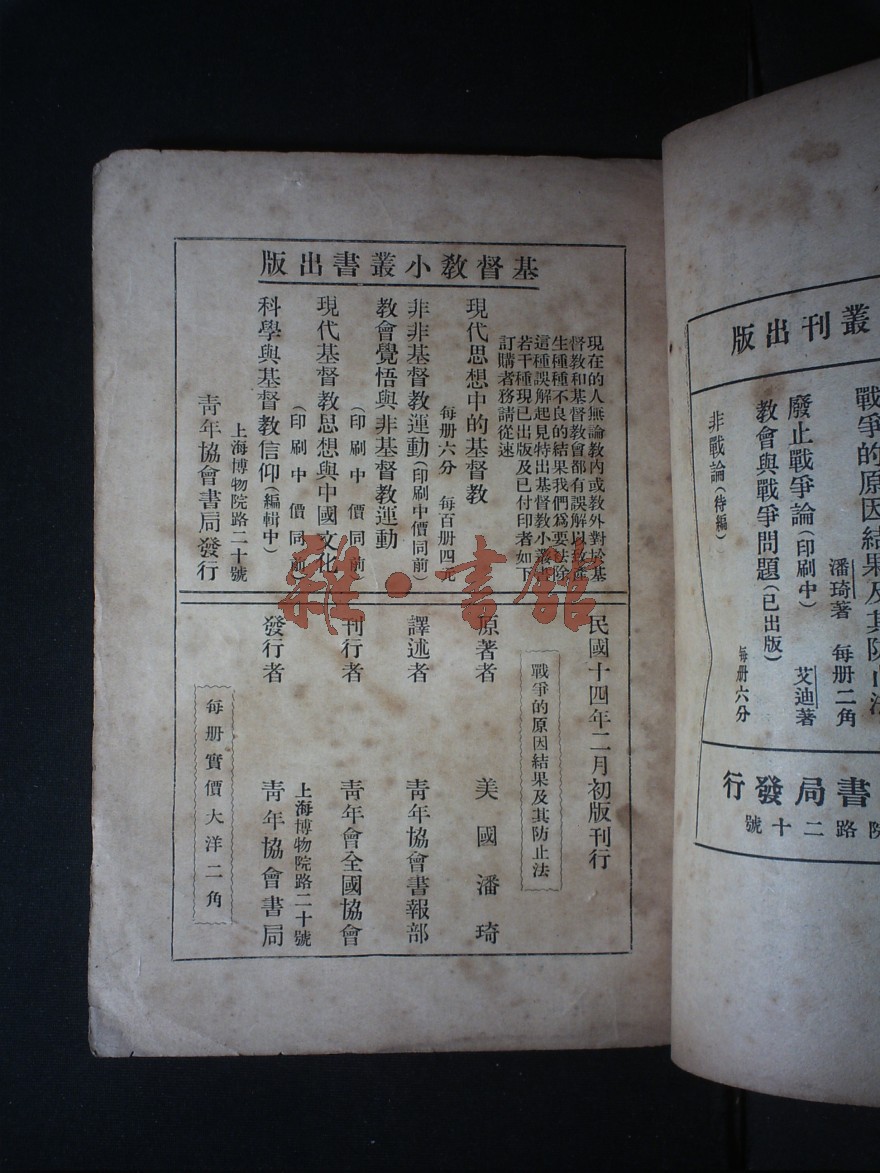 基督教小叢書出版
現在的人無論教內或教外對於基
督教和基督教會都有誤解以致產
生種種不良的結果我們爲要法除
這種誤解起見特出基督教小叢書
若干種現已出版及已付印者如下
訂購者務請從速
現代思想中的基督教
每册六分 每百册四元
非非基督教運動(印刷中價同前)
教會覺悟與非基督教運動
(印刷中價同前)
現代基督教思想與中國文化
(印刷中價同前)
科學與基督教信仰(編輯中)
上海博物院路二十號
青年協會書局發行
民國十四年二月初版刊行
戰爭的原因結果及其防止法
原著者 美國潘琦
譯述者 青年協會書報部
刊行者 青年會全國協會
上海博物院路二十號
發行者 青年協會書局
每册實價大洋二角
雜·書館
叢刊出版
戰爭的原因結果及其防止法
潘琦著 每册二角
廢止戰爭論(印刷中) 艾迪著
教會與戰爭問題(已出版)
每册六分
非戰論(待編)
書局發行
院路二十號